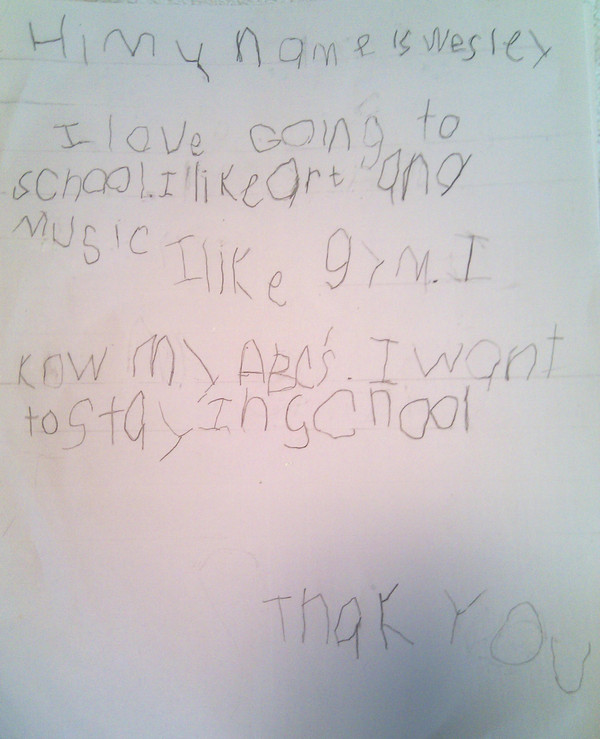 Hi my name is Wesley
I love Going to
school. I like Art and
Music I like gym. I
know My ABC's. I want
to stay in school
Thak You